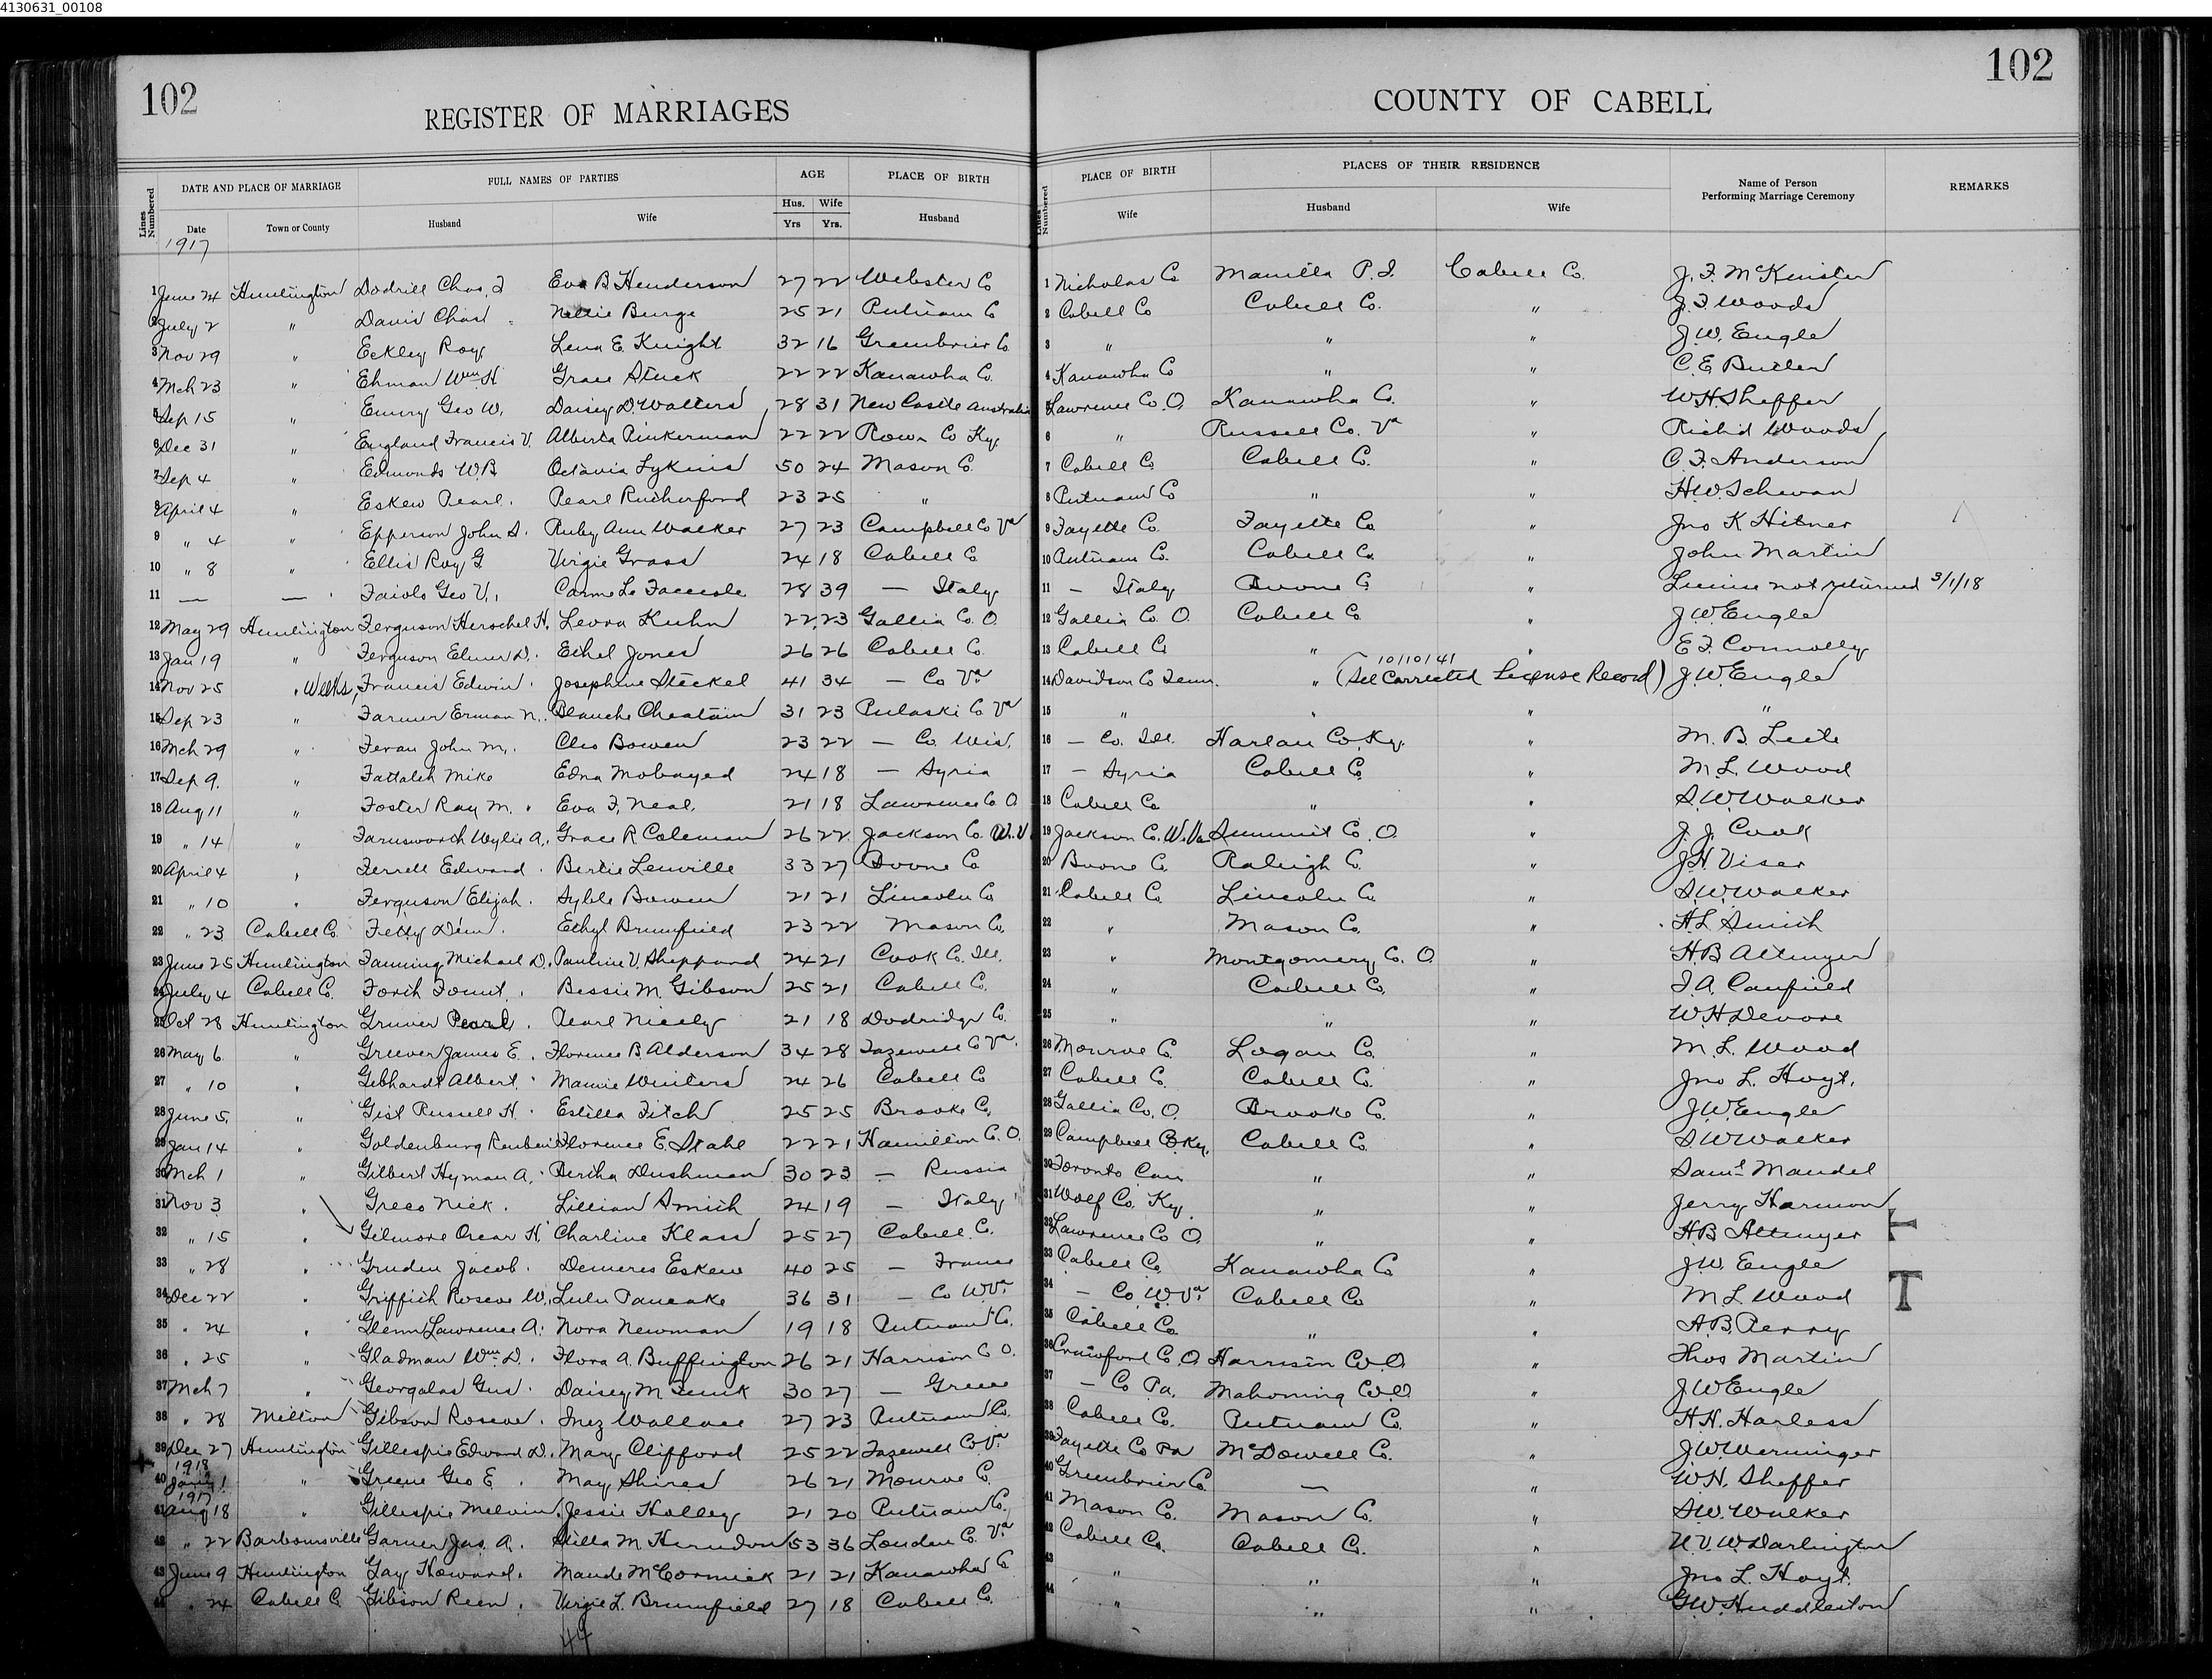 4130631_00108
102
REGISTER OF MARRIAGES
COUNTY OF CABELL
102
Lines Numbered
DATE AND PLACE OF MARRIAGE
FULL NAMES OF PARTIES
AGE
PLACE OF BIRTH
Lines Numbered
PLACE OF BIRTH
PLACES OF THEIR RESIDENCE
Name of Person Performing Marriage Ceremony
REMARKS
Date
Town or County
Husband
Wife
Hus. Yrs
Wife Yrs.
Husband
Wife
Husband
Wife
1917
1 June 24 Huntington Dodrill Chas. I Eva B Henderson 27 22 Webster Co 1 Nicholas Co Manilla P.I. Cabell Co. J. F. McKinster
2 July 2 " Davis Chas Nellie Burge 25 21 Putnam Co 2 Cabell Co Cabell Co. " J. F. Woods
3 Nov 29 " Eckley Roy Lena E. Knight 32 16 Greenbrier Co 3 " " " J. W. Engle
4 Mch 23 " Ehman Wm H Grace Stuck 22 22 Kanawha Co. 4 Kanawha Co " " C. E. Butler
5 Sep 15 " Emery Geo W. Daisey D. Walters 28 31 New Castle Australia 5 Lawrence Co. O. Kanawha Co. " W. H. Sheffer
6 Dec 31 " England Francis V. Alberta Pinkerman 22 22 Rown Co Ky 6 " Russell Co. Va " Richd Woods
7 Sep 4 " Edmonds W.B Octavia Lykins 50 24 Mason Co. 7 Cabell Co Cabell Co. " C. F. Anderson
8 April 4 " Eskew Pearl. Pearl Rutherford 23 25 " 8 Putnam Co " " H. W. Schwan
9 " 4 " Epperson John S. Ruby Ann Walker 27 23 Campbell Co Va 9 Fayette Co. Fayette Co. " Jno K Hitner
10 " 8 " Ellis Roy G Virgie Grass 24 18 Cabell Co 10 Putnam Co. Cabell Co. " John Martin
11 — — Faiolo Geo V. Carme La 28 39 — Italy 11 – Italy Boone Co " License not returned 3/1/18
12 May 29 Huntington Ferguson Herschel H. Levra Kuhn 22 23 Gallia Co. O. 12 Gallia Co. O. Cabell Co " J W Engle
13 Jan 19 " Ferguson Elmer D. Ethel Jones 26 26 Cabell Co. 13 Cabell Co " " E. F. Connolly
14 Nov 25 " Weeks, Francis Edwin. Josephine Steckel 41 34 — Co Va. 14 Davidson Co Tenn. " 10/10/41 (See Corrected License Record) " J. W. Engle
15 Sep 23 " Farmer Erman N. Blanche Cheatam 31 23 Pulaski Co Va 15 " " " "
16 Mch 29 " Feran John M. Cleo Bowen 23 22 — Co. Wis. 16 – Co. Ill. Harlan Co. Ky. " M. B. Leete
17 Sep 9. " Fattaleh Mike Edna Mobayed 24 18 — Syria 17 – Syria Cabell Co. " M L. Wood
18 Aug 11 " Foster Ray M. Eva F. Neal. 21 18 Lawrence Co. O 18 Cabell Co. " " S. W. Walker
19 " 14 " Farnsworth Wylie A. Grace R Coleman 26 22 Jackson Co. W.V. 19 Jackson Co. W.Va Summit Co. O. " J. J. Cook
20 April 4 " Ferrell Edward. Bertie Lenville 33 27 Boone Co 20 Boone Co. Raleigh Co. " J H Viser
21 " 10 " Ferguson Elijah. Syble Bowen 21 21 Lincoln Co 21 Cabell Co. Lincoln Co " S. W. Walker
22 " 23 Cabell Co. Fetty Dem. Ethyl Brumfield 23 22 Mason Co, 22 " Mason Co. " H L Smith
23 June 25 Huntington Fanning Michael D. Pauline V. Sheppard 24 21 Cook Co. Ill. 23 " Montgomery Co. O. " H. B Altmyer
24 July 4 Cabell Co. Forth Fount. Bessie M. Gibson 25 21 Cabell Co. 24 " Cabell Co. " I. A. Canfield
25 Oct 28 Huntington Gruver Pearl. Pearl Nicely 21 18 Dodridge Co. 25 " " " W. H. Devore
26 May 6 " Greever James E. Florence B. Alderson 34 28 Tazewell Co Va. 26 Monroe Co. Logan Co. " M. L. Wood
27 " 10 " Gebhardt Albert. Mamie Winters 24 26 Cabell Co 27 Cabell Co. Cabell Co. " Jno L. Hoyt.
28 June 5. " Gist Russell H. Estilla Fitch 25 25 Brooke Co, 28 Gallia Co. O. Brooke Co. " J. W. Engle
29 Jan 14 " Goldenburg Reuben Florence E. Stahl 22 21 Hamilton Co. O. 29 Campbell Co Ky. Cabell Co. " S W Walker
30 Mch 1 " Gilbert Hyman A. Bertha Dushman 30 23 – Russia 30 Toronto Can " " Saml Mandel
31 Nov 3 " Greco Nick. Lillian Smith 24 19 – Italy 31 Wolf Co. Ky. " " Jerry Harmon
32 " 15 " Gilmore Oscar H. Charline Klass 25 27 Cabell Co. 32 Lawrence Co O. " " H. B Altmyer
33 " 28 " Gruden Jacob. Demeres Eskew 40 25 – France 33 Cabell Co. Kanawha Co " J. W. Engle
34 Dec 22 " Griffith Roscoe W. Lulu Pancake 36 31 – Co W Va. 34 – Co W. Va Cabell Co " M L Wood T
35 " 24 " Glenn Lawrence A. Nora Newman 19 18 Putnam Co. 35 Cabell Co. " " A. B. Perry
36 " 25 " Gladman Wm D. Flora A. Buffington 26 21 Harrison Co O. 36 Crawford Co. O. Harrison Co. O. " Thos Martin
37 Mch 7 " Georgalas Gus. Daisey M 30 27 – Greece 37 – Co Pa. Mahoning Co. O. " J W Engle
38 " 28 Milton Gibson Roscoe. Inez Wallace 27 23 Putnam Co. 38 Cabell Co. Putnam Co. " H. H. Harless
39 Dec 27 Huntington Gillespie Edward D. Mary Clifford 25 22 Tazewell Co Va 39 Fayette Co Pa McDowell Co. " J. W. Werninger
1918
40 Jany 1 " Greene Geo E. May Shires 26 21 Monroe Co. 40 Greenbrier Co. — " W. H. Sheffer
1917
41 Aug 18 " Gillespie Melvin. Jessie Holley 21 20 Putnam Co. 41 Mason Co. Mason Co. " S. W. Walker
42 " 22 Barboursville Garner Jas. A. Stilla M Herndon 53 36 Louden Co. Va 42 Cabell Co. Cabell Co. " U. V. W. Darlington
43 June 9 Huntington Gay Howard. Maude McCormick 21 21 Kanawha Co 43 " " " Jno L. Hoyt.
44 " 24 Cabell Co. Gibson Reen. Virgie L. Brumfield 27 18 Cabell Co. 44 " " " G. W. Huddleston
44